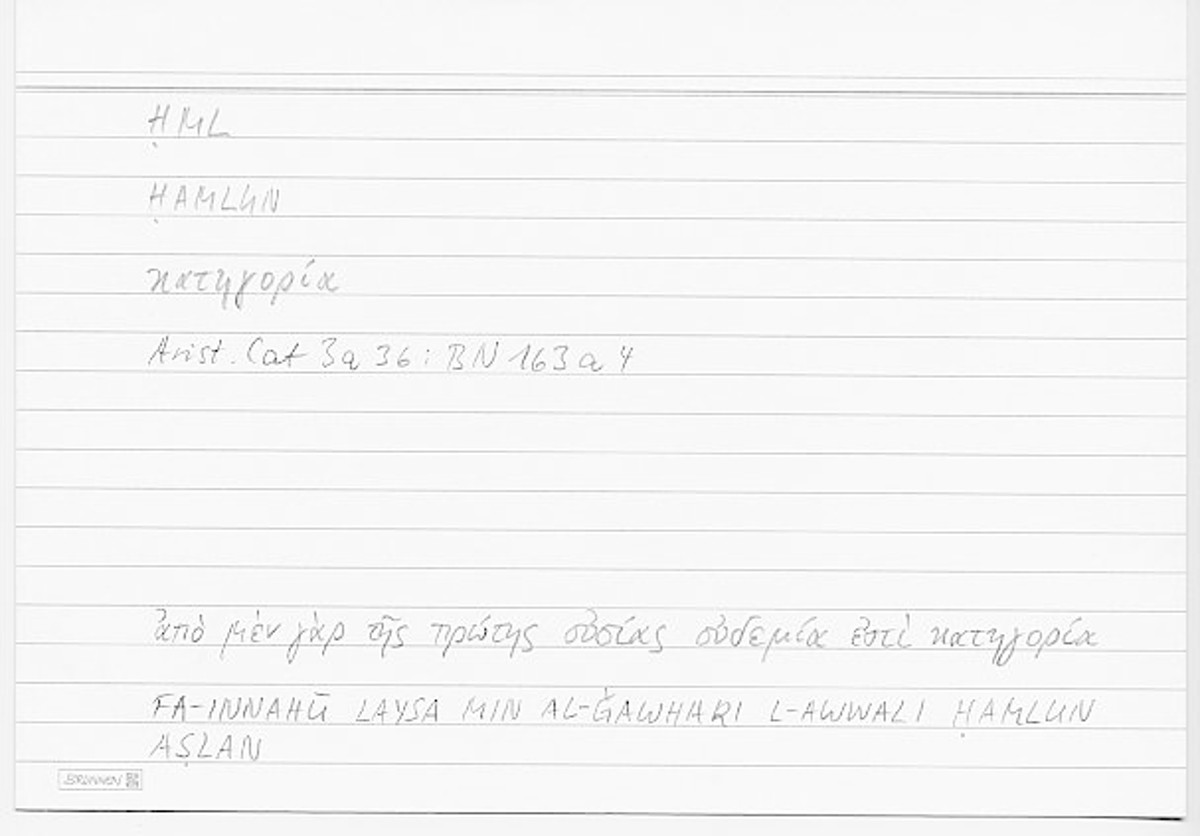 ḤML
ḤAMLUN
κατηγορία
Arist. Cat 3a 36 : BN 163 a 4
ἀπὸ μὲν γὰρ τῆς πρώτης οὐσίας οὐδεμία ἐστὶ κατηγορία
FA-INNAHŪ LAYSA MIN AL-ǦAWHARI L-AWWALI ḤAMLUN
AṢLAN
BRUNNEN